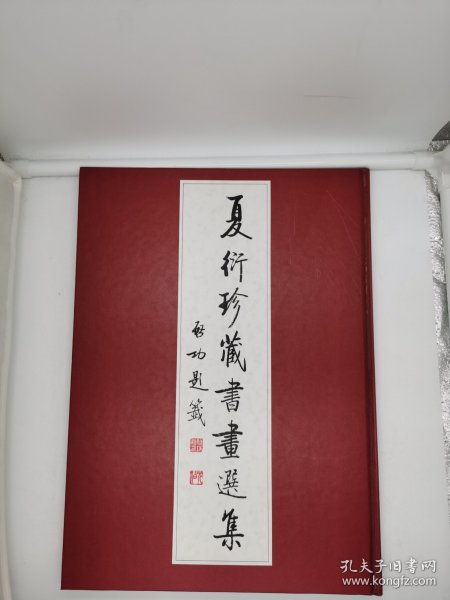 夏衍珍藏書畫選集
啓功題籤
孔夫子旧书网
www.kongfz.com